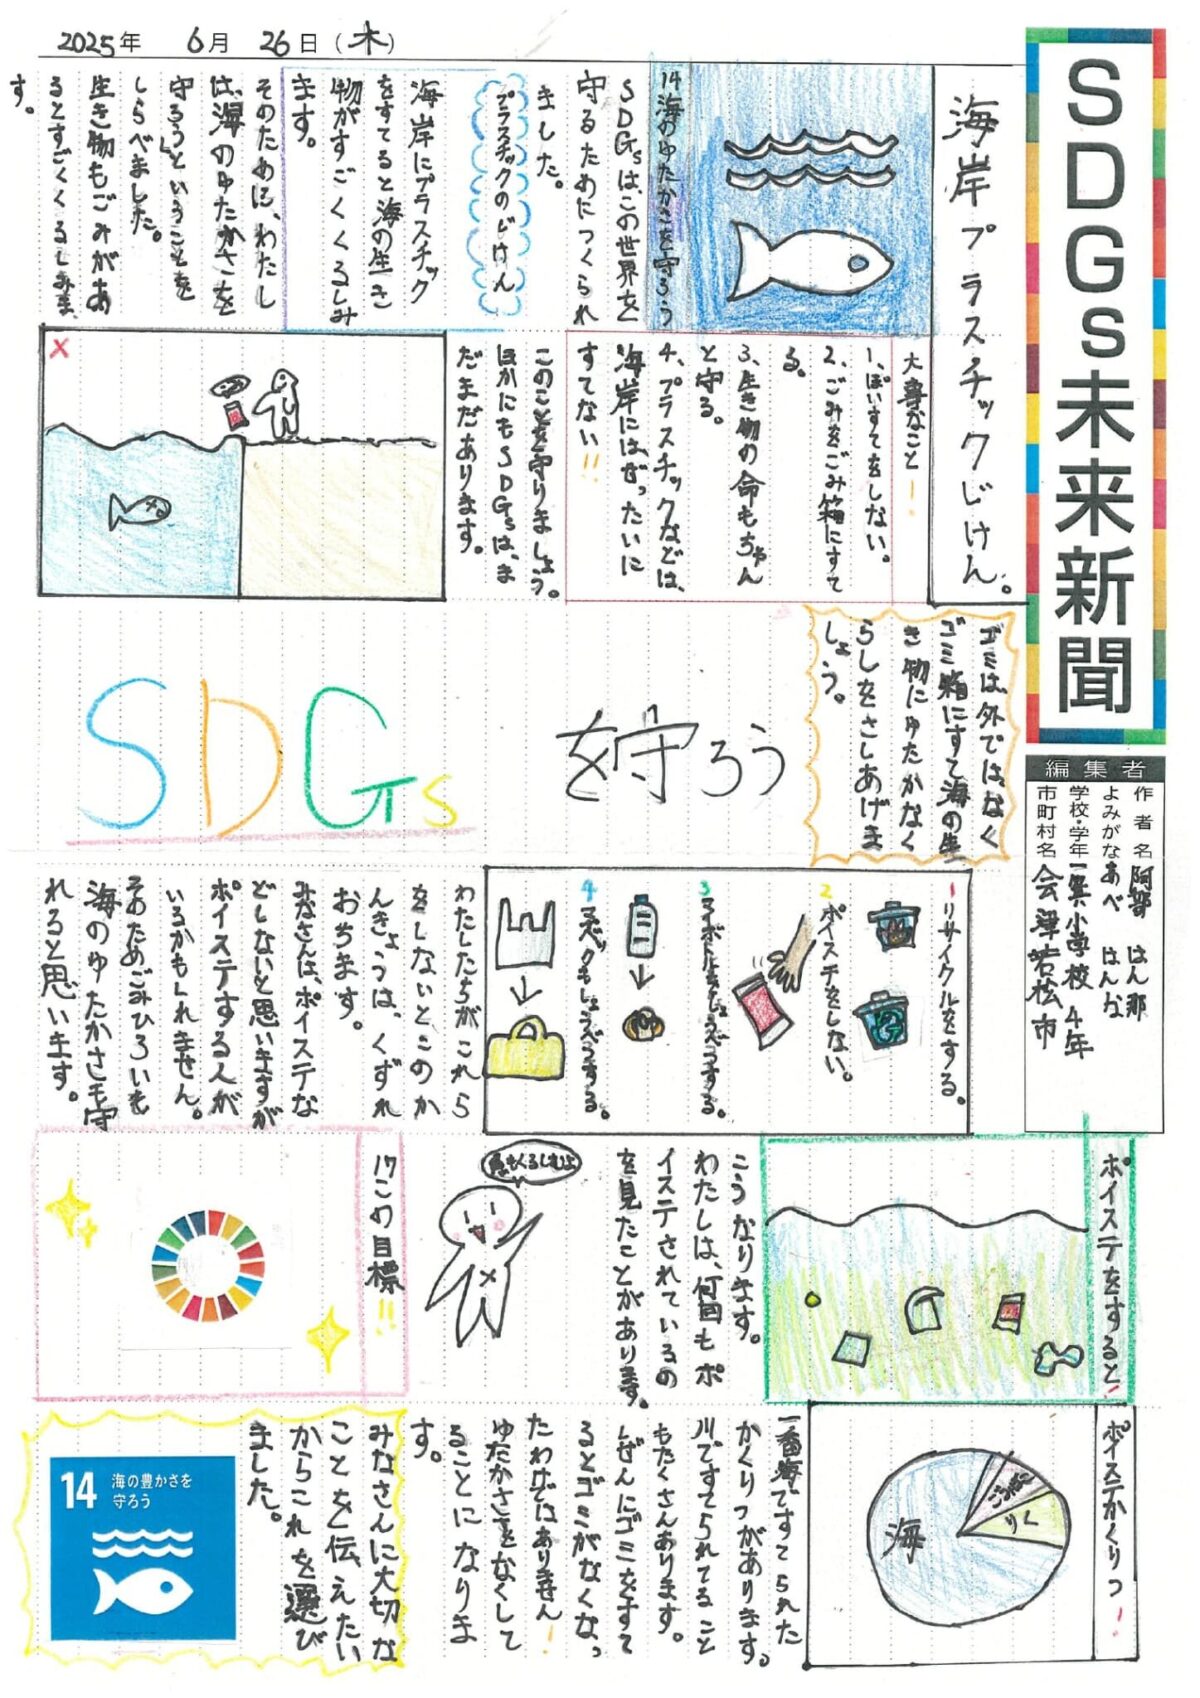 2025年 6月 26日(木)
SDGs未来新聞
編集者
作者名 阿部 はん那
よみがな あべ はんな
学校・学年 一箕小学校 4年
市町村名 会津若松市
海岸プラスチックじけん。
14海のゆたかさを守ろう
SDGsは、この世界を
守るためにつくられ
ました。
プラスチックのじけん
海岸にプラスチック
をすてると海の生き
物がすごくくるしみ
ます。
そのために、わたし
は、「海のゆたかさを
守ろう」ということを
しらべました。
生き物もごみがあ
るとすごくくるしみま
す。
大事なこと!
1、ぽいすてをしない。
2、ごみをごみ箱にすて
る。
3、生き物の命もちゃん
と守る。
4、プラスチックなどは、
海岸にはぜったいに
すてない!!
このことを守りましょう。
ほかにもSDGsは、ま
だまだあります。
×
ゴミは外ではなく
ゴミ箱にすて海の生
き物にゆたかなく
らしをさしあげま
しょう。
SDGsを守ろう
1 リサイクルをする。
2 ポイステをしない。
3 マイボトルをしょうぶうする。
4
わたしたちがこれら
をしないとこのか
んきょうは、くずれ
おちます。
みなさんは、ポイステな
どしないと思いますが
ポイステする人が
いるかもしれません。
そのためごみひろいも
海のゆたかさも守
れると思います。
ポイステをすると!
こうなります。
わたしは、何回もポ
イステされているの
を見たことがあります。
魚もくるしむよ
17この目標!!
ポイステかくりつ!
海
りく
一番海ですてられた
かくりつがあります。
川ですてられてること
もたくさんあります。
しぜんにゴミをすて
るとゴミがなくなっ
たわけではありません!
ゆたかさをなくして
ることになりま
す。
みなさんに大切な
ことを伝えたい
からこれを選び
ました。
14 海の豊かさを
守ろう